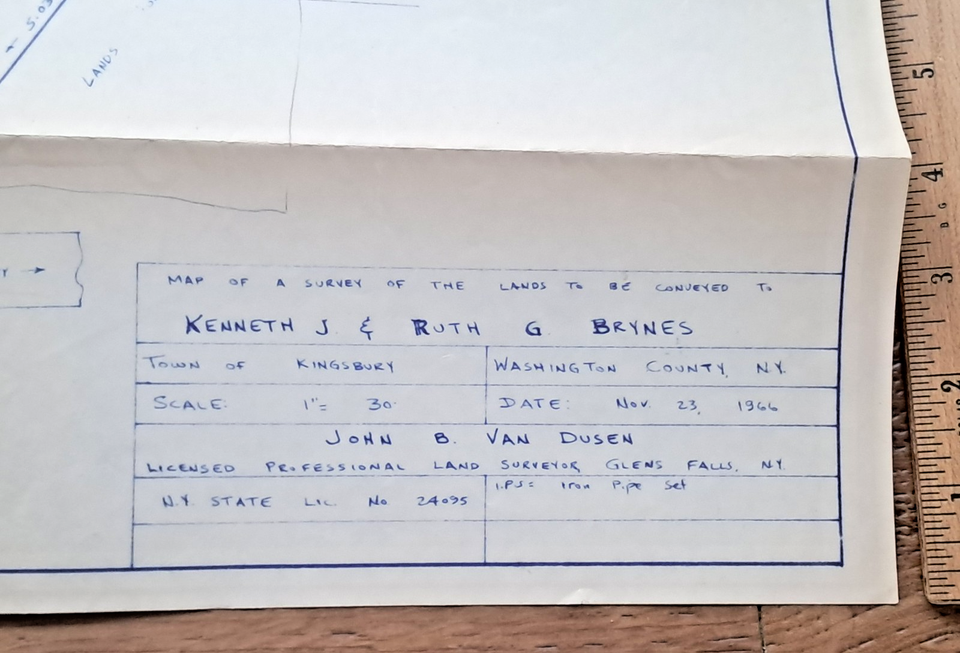 ← 5.03
LANDS
MAP OF A SURVEY OF THE LANDS TO BE CONVEYED TO
KENNETH J. & RUTH G BRYNES
TOWN OF KINGSBURY
WASHINGTON COUNTY, N.Y.
SCALE: 1"= 30'
DATE: Nov. 23, 1966
JOHN B. VAN DUSEN
LICENSED PROFESSIONAL LAND SURVEYOR, GLENS FALLS, N.Y.
N.Y. STATE LIC. No. 24095
I.P.S = Iron Pipe Set
5
4
3
2
1